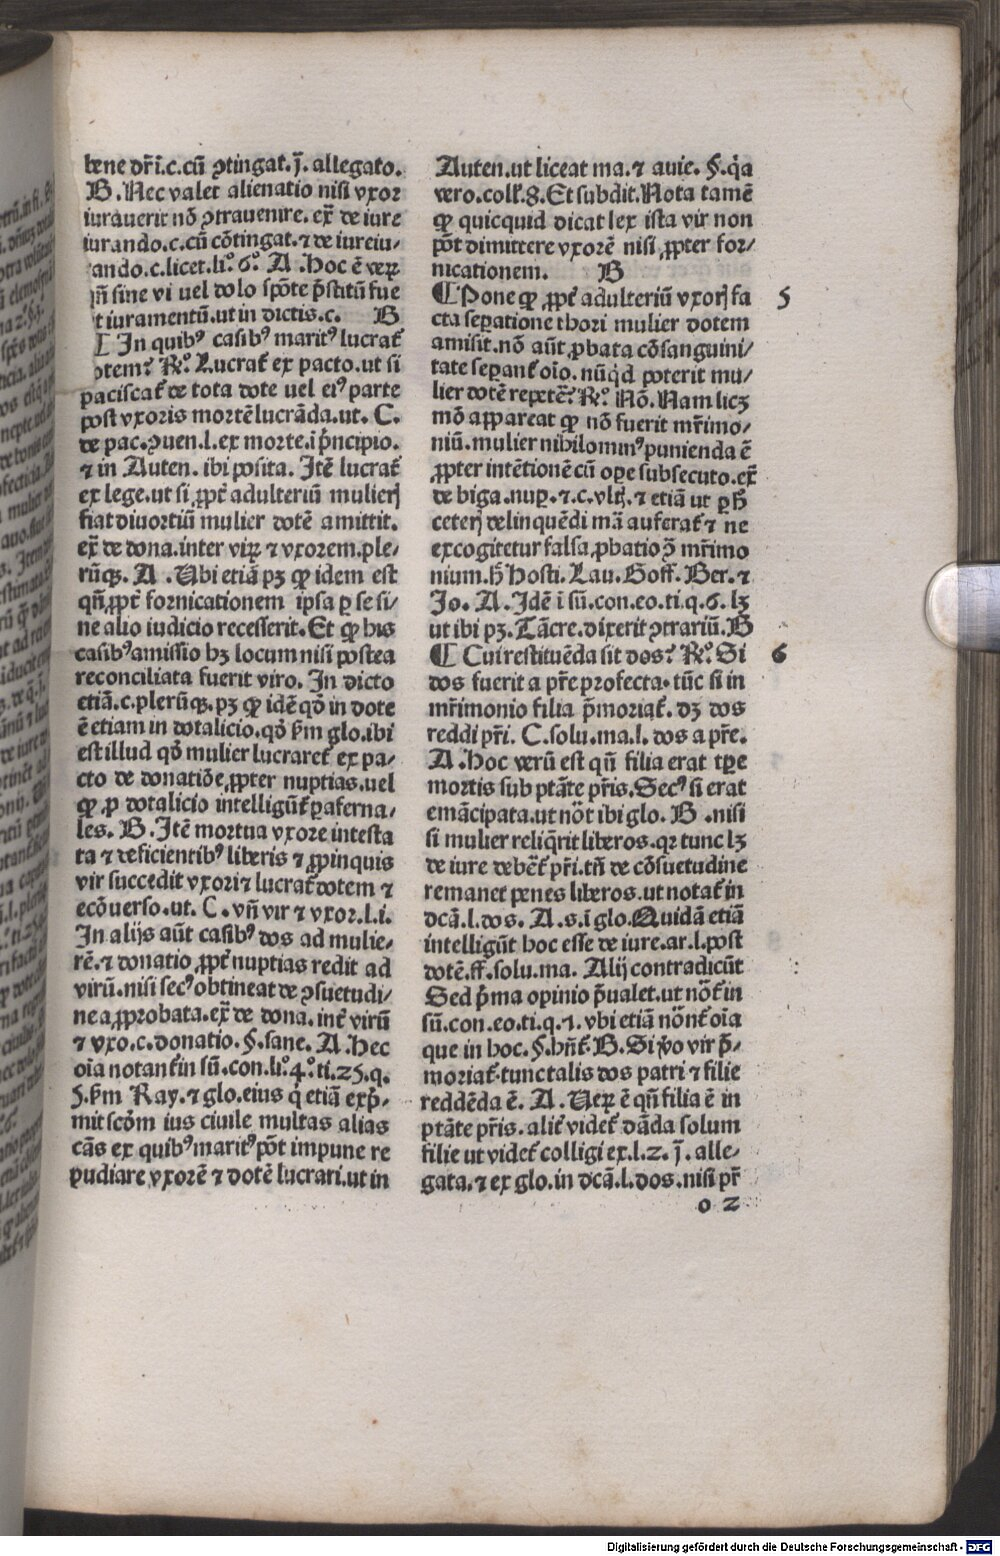 bene dr̄ i.c.cū ꝯtingat.j̄. allegato.
B. Nec valet alienatio nisi vxor
iurauerit nō ꝯtrauenire. ex̄ de iure
iurando.c.cū cōtingat.⁊ de iureiu/
ando.c.licet.li.º6.º A .Hoc ē veꝝ
qñ sine vi uel dolo spōte p̄stitū fue
t iuramentū.ut in dictis.c. B
In quibꝰ casibꝰ maritꝰ lucrat̄
otem? Rº. Lucrat̄ ex pacto.ut si
paciscat̄ de tota dote uel eiꝰ parte
post vxoris mortē lucrāda.ut. C.
de pac.ꝯuen.l.ex morte.ī p̄ncipio.
⁊ in Auten. ibi posita. Itē lucrat̄
ex lege.ut si ꝓpt̄ adulteriū mulierꝭ
fiat diuortiū mulier dotē amittit.
ex̄ de dona.inter viꝝ ⁊ vxorem.ple/
rūqꝫ. A .Ubi etiā pꝫ ꝙ idem est
qñ ꝓpt̄ fornicationem ipsa ꝑ se si/
ne alio iudicio recesserit. Et ꝙ his
casibꝰ amissio hꝫ locum nisi postea
reconciliata fuerit viro. In dicto
etiā.c.plerūqꝫ.pꝫ ꝙ idē qd̄ in dote
ē etiam in dotalicio.qd̄ ẜm glo.ibi
est illud qd̄ mulier lucraret̄ ex pa/
cto de donatiōe ꝓpter nuptias.uel
ꝙ ꝓ dotalicio intelligūt̄ ꝑaferna/
les. B. Itē mortua vxore intesta
ta ⁊ deficientibꝰ liberis ⁊ ꝓpinquis
vir succedit vxori ⁊ lucrat̄ dotem ⁊
ecōuerso.ut. C. vñ vir ⁊ vxor.l.i.
In alijs aūt casibꝰ dos ad mulie/
rē.⁊ donatio ꝓpt̄ nuptias redit ad
virū.nisi secꝰ obtineat de ꝯsuetudi/
ne aꝓprobata.ex̄ de dona.int̄ virū
⁊ vxo.c.donatio.§.sane. A .Hec
oīa notant̄ in sū.con.li.º4.ºti.25.q.
5.ẜm Ray.⁊ glo.eius q̄ etiā exp̄/
mit scd̄m ius ciuile multas alias
cās ex quibꝰ maritꝰ pōt impune re
pudiare vxorē ⁊ dotē lucrari.ut in
Auten.ut liceat ma.⁊ auie. §.q̇a
vero.coll̄.8.Et subdit. Nota tamē
ꝙ quicquid dicat lex ista vir non
pōt dimittere vxorē nisi ꝓpter for/
nicationem. B
¶ Pone ꝙ ꝓpt̄ adulteriū vxorꝭ fa 5
cta seꝑatione thori mulier dotem
amisit.nō aūt ꝓbata cōsanguini/
tate seꝑant̄ oīo. nūqd̄ poterit mu/
lier dotē repetē? Rº. Nō. Nam licꝫ
mō appareat ꝙ nō fuerit mr̄imo/
niū.mulier nihilominꝰ punienda ē
ꝓpter intētionē cū oꝑe subsecuto.ex̄
de biga.nuꝑ.⁊.c.vltꝭ.⁊ etiā ut ꝑ h̄
ceterꝭ delinquēdi mā auferat̄ ⁊ ne
excogitetur falsa ꝓbatio ꝯ̄ mr̄imo
nium.h̄ Hosti. Lau. Goff. Ber. ⁊
Jo. A. Idē ī sū.con.eo.ti.q.6. lꝫ
ut ibi pꝫ. Tācre.dixerit ꝯtrariū. B
¶ Cui restituēda sit dos? Rº. Si 6
dos fuerit a pr̄e profecta.tūc si in
mr̄imonio filia p̄moriat̄. dꝫ dos
reddi pr̄i. C.solu.ma.l. dos a pr̄e.
A .Hoc verū est qñ filia erat tꝑe
mortis sub ptāte pr̄is. Secꝰ si erat
emācipata.ut nōt̄ ibi glo. B .nisi
si mulier reliq̄rit liberos.qꝛ tunc lꝫ
de iure debēt̄ pr̄i.tñ de cōsuetudine
remanet penes liberos.ut notat̄ in
dcā.l.dos. A .s.ī glo. Quidā etiā
intelligūt hoc esse de iure.ar.l.post
dotē.ff.solu.ma. Alij contradicūt
Sed p̄ma opinio p̄ualet.ut nōt̄ in
sū.con.eo.ti.q.1. vbi etiā nōnt̄ oīa
que in hoc. §.hñt̄. B. Si v̄o vir p̄/
moriat̄.tunc talis dos patri ⁊ filie
reddēda ē. A .Ueꝝ ē qñ filia ē in
ptāte pr̄is. alit̄ videt̄ dāda solum
filie ut videt̄ colligi ex.l.2. j̄. alle/
gata.⁊ ex glo.in dcā.l.dos.nisi pr̄
o 2
Digitalisierung gefördert durch die Deutsche Forschungsgemeinschaft - DFG